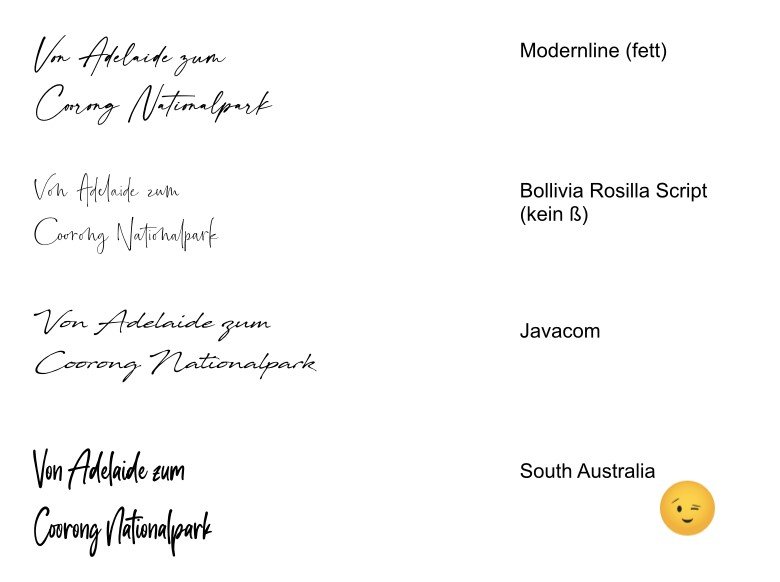 Von Adelaide zum
Coorong Nationalpark
Modernline (fett)
Von Adelaide zum
Coorong Nationalpark
Bollivia Rosilla Script
(kein ß)
Von Adelaide zum
Coorong Nationalpark
Javacom
Von Adelaide zum
Coorong Nationalpark
South Australia